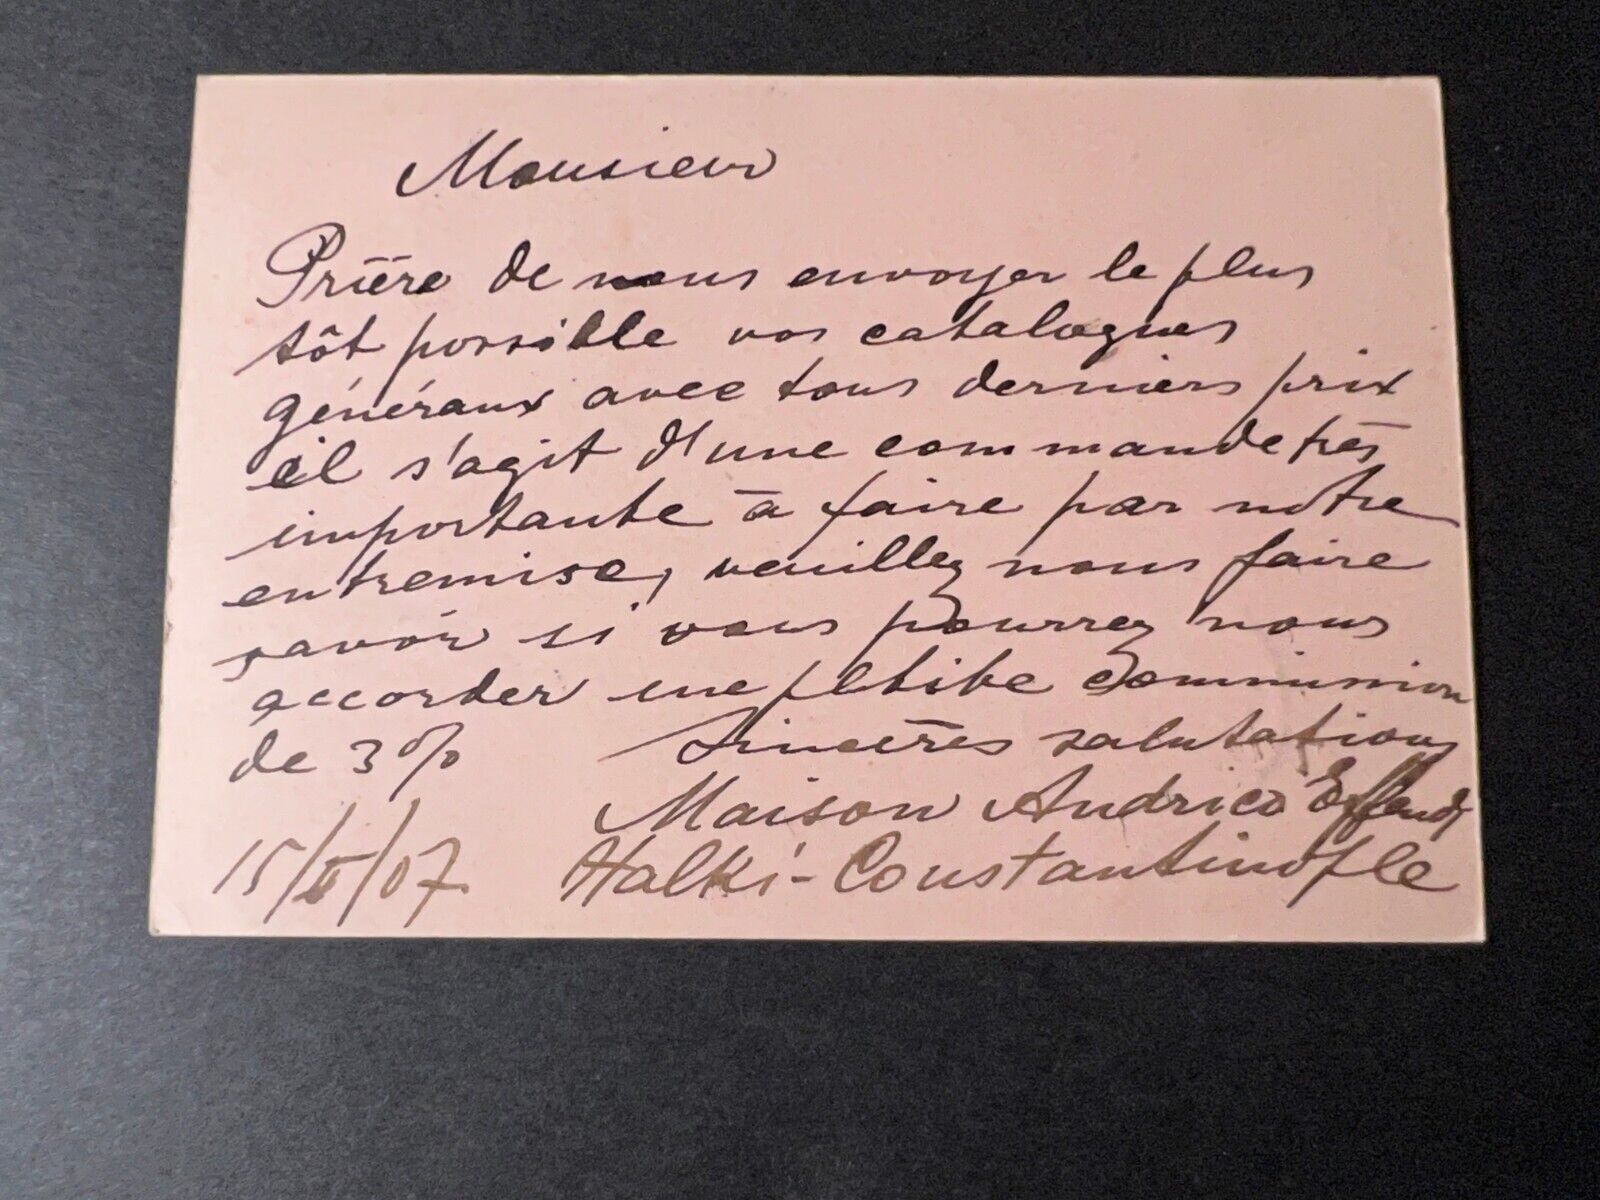 Monsieur
Prière de nous envoyer le plus
tôt possible vos catalogues
généraux avec tous derniers prix
il s'agit d'une commande très
importante à faire par notre
entremise, veuillez nous faire
savoir si vous pourrez nous
accorder une petite commission
de 3% Sincères salutations
Maison Andrico Effendi
15/II/07 Halki-Constantinople